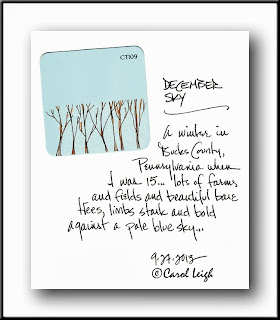 CT109
DECEMBER
SKY
A winter in
Bucks County,
Pennsylvania when
I was 15... lots of farms
and fields and beautiful bare
trees, limbs stark and bold
against a pale blue sky...
9.27.2013
©Carol Leigh